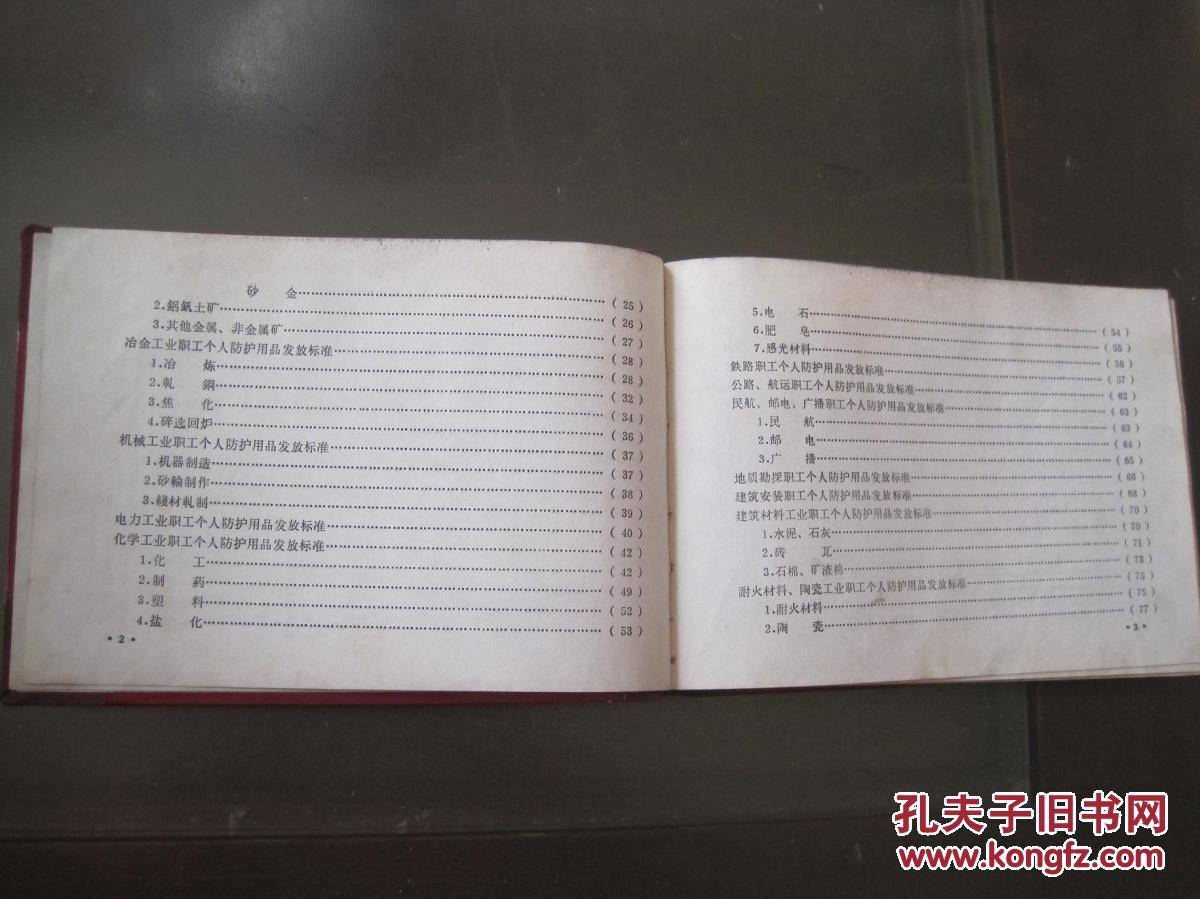 砂　金……(25)
2.鋁釩土矿……(26)
3.其他金属、非金属矿……(27)
冶金工业职工个人防护用品发放标准……(28)
1.冶　炼……(28)
2.軋　鋼……(32)
3.焦　化……(34)
4.碎选回炉……(36)
机械工业职工个人防护用品发放标准……(37)
1.机器制造……(37)
2.砂輪制作……(38)
3.綫材軋制……(39)
电力工业职工个人防护用品发放标准……(40)
化学工业职工个人防护用品发放标准……(42)
1.化　工……(42)
2.制　药……(49)
3.塑　料……(52)
4.盐　化……(53)
• 2 •
5.电　石……(54)
6.肥　皂……(55)
7.感光材料……(56)
鉄路职工个人防护用品发放标准……(57)
公路、航远职工个人防护用品发放标准……(62)
民航、邮电、广播职工个人防护用品发放标准……(63)
1.民　航……(63)
2.邮　电……(64)
3.广　播……(65)
地质勘探职工个人防护用品发放标准……(66)
建筑安装职工个人防护用品发放标准……(68)
建筑材料工业职工个人防护用品发放标准……(70)
1.水泥、石灰……(70)
2.砖　瓦……(71)
3.石棉、矿渣棉……(73)
耐火材料、陶瓷工业职工个人防护用品发放标准……(75)
1.耐火材料……(75)
2.陶　瓷……(77)
• 3 •
孔夫子旧书网
www.kongfz.com